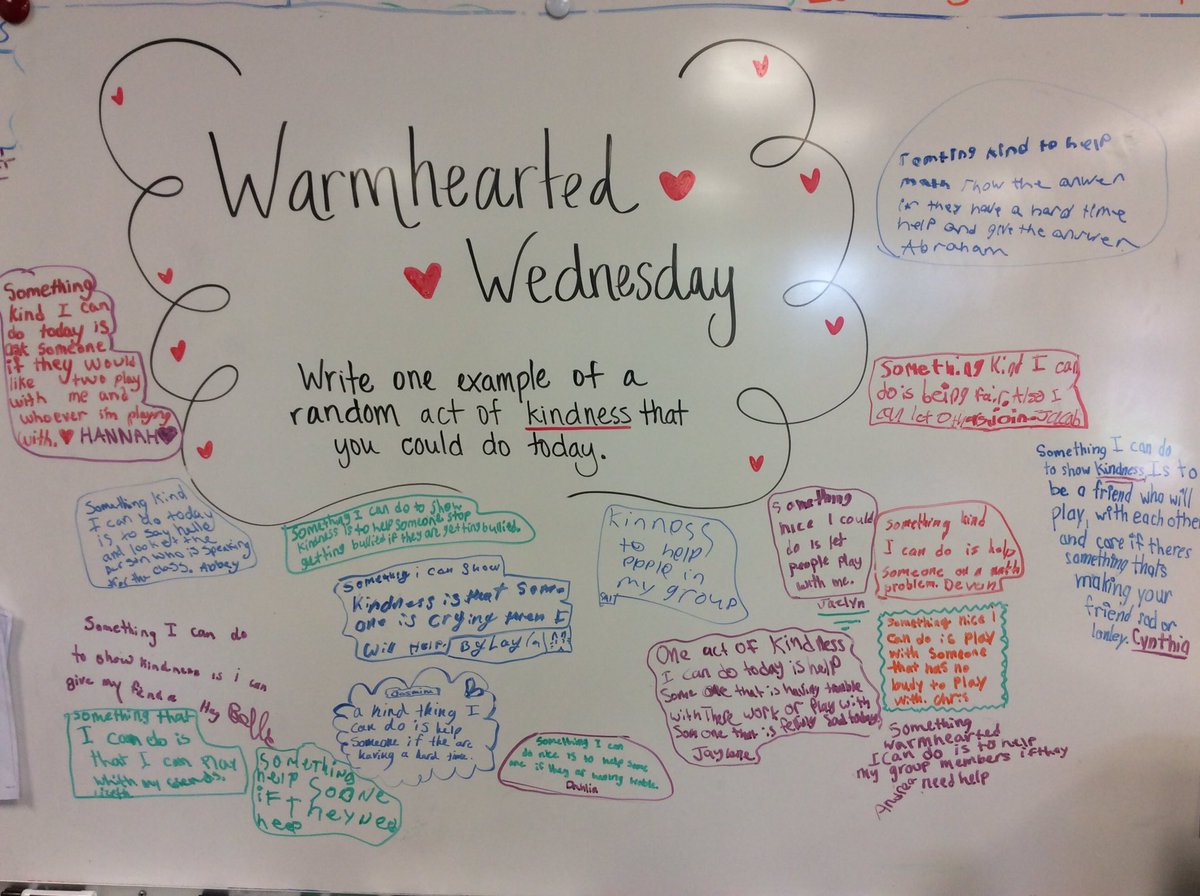 Warmhearted
Wednesday
Write one example of a
random act of kindness that
you could do today.
Somting kind to help
math show the anwer
if they have a hard time
help and give the answer
Abraham
Something
kind I can
do today is
ask someone
if they would
like two play
with me and
whoever i'm playing
with. HANNAH
Something Kind I can
do is being fair, Also I
can let others join - Jacob
Something I can do
to show kindness, Is to
be a friend who will
play, with each other
and care if theres
something thats
making your
friend sad or
lonley. Cynthia
Something kind
I can do today
is to say hello
and look at the
person who is speaking
for the class. Abbey
Something I can do to show
kindness is to help someone stop
getting bullied if they are getting bullied.
Something i can show
kindness is that some
one is crying then I
will help. By Layla!!
kinness
to help
epple in
my group
Something
nice I could
do is let
people play
with me.
Jaclyn
Something kind
I can do is help
someone on a math
problem. Devan
Something nice I
can do is play
with someone
that has no
budy to play
with. Chris
Something I can do
to show kindness is i can
give my frend a Hug Bella
Something that
I can do is
that I can play
whith my friends.
Jasmin
a kind thing I
can do is help
someone if the are
having a hard time.
SOMETHING
help SOONE
iF THEY NEED
heep
Something I can
do nice is to help some
one if they ar having troble.
Dahlia
One act of Kindness
I can do today is help
Some one that is having trouble
with There work or Play with
Som one that is feeling sad today!
Jaylane
Something
warmhearted
I can do is to help
my group members if they
need help
Andrea